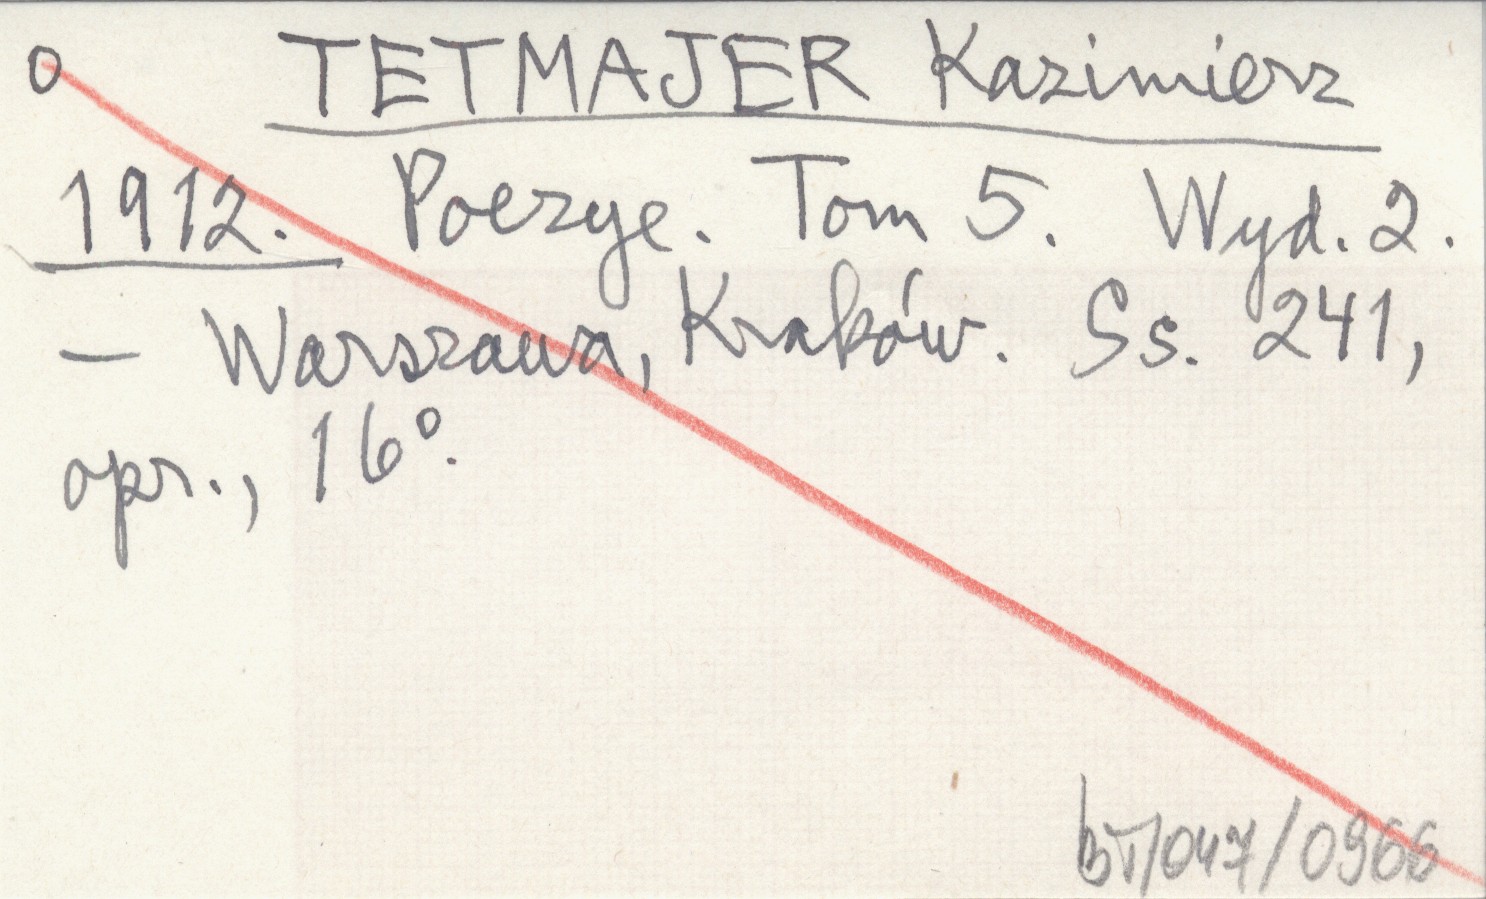 O TETMAJER Kazimierz
1912. Poezye. Tom 5. Wyd. 2.
— Warszawa, Kraków. Ss. 241,
opr., 16°.
bT/047/0966